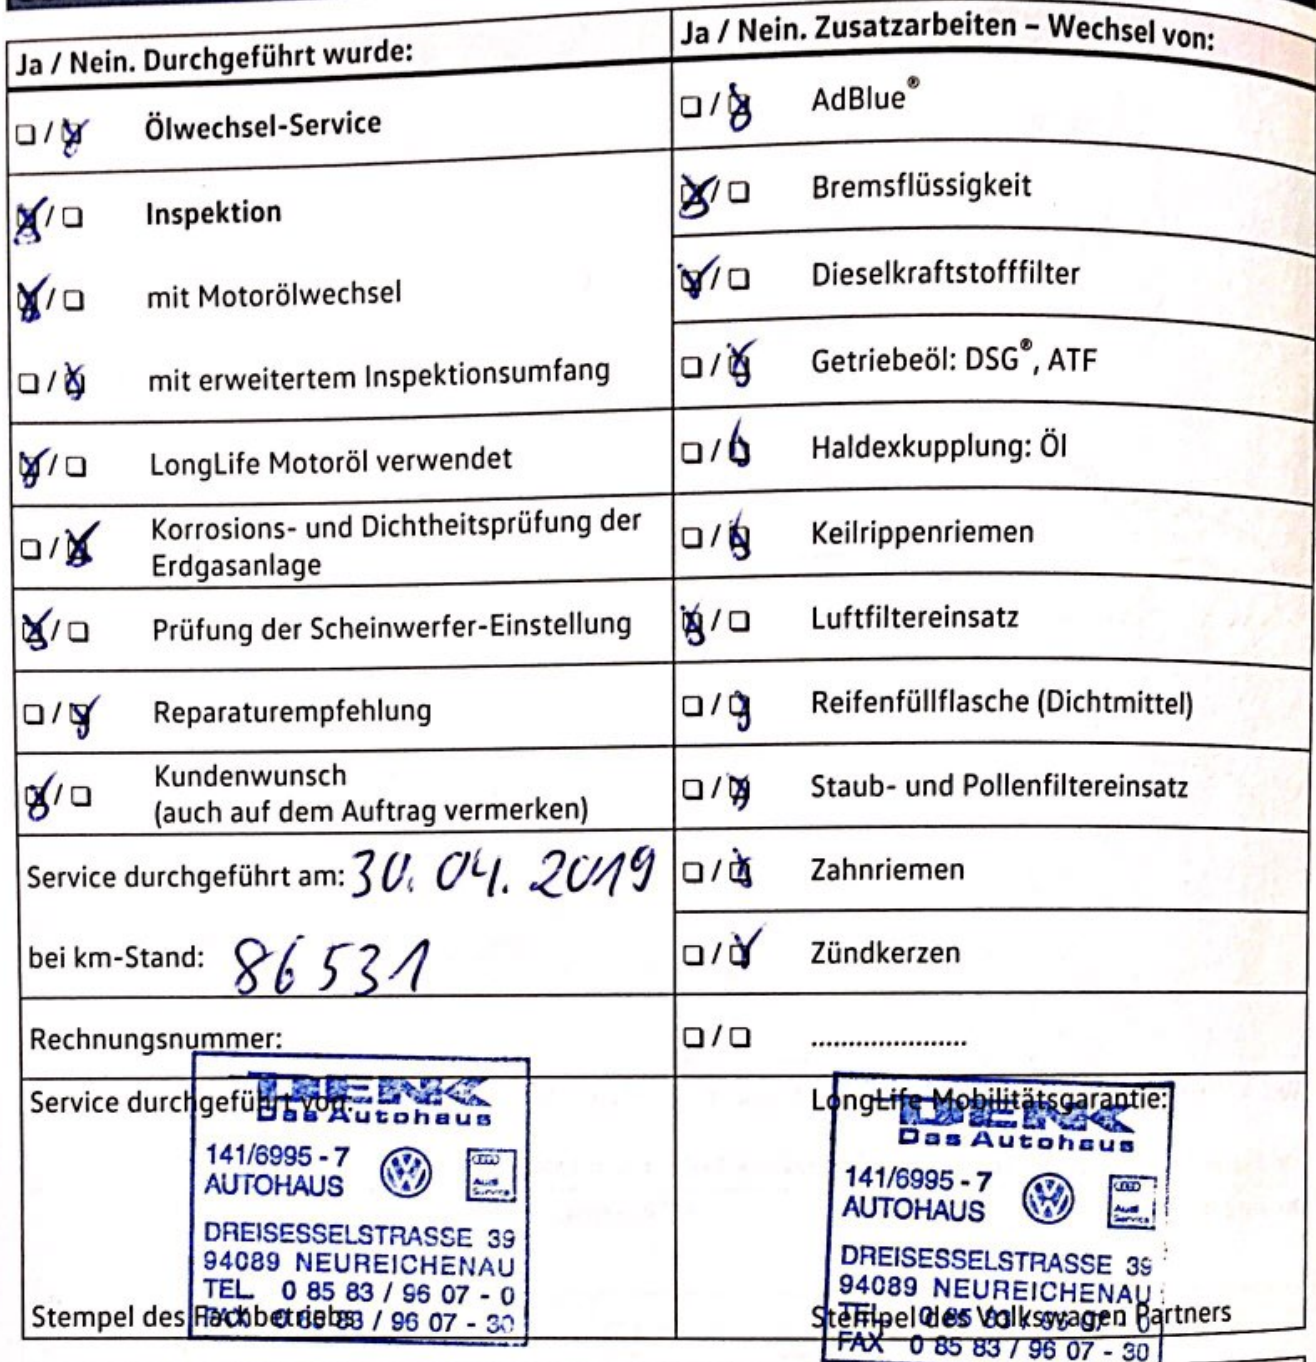 Ja / Nein. Durchgeführt wurde:
☐ / ☒ Ölwechsel-Service
☒ / ☐ Inspektion
☒ / ☐ mit Motorölwechsel
☐ / ☒ mit erweitertem Inspektionsumfang
☒ / ☐ LongLife Motoröl verwendet
☐ / ☒ Korrosions- und Dichtheitsprüfung der
Erdgasanlage
☒ / ☐ Prüfung der Scheinwerfer-Einstellung
☐ / ☒ Reparaturempfehlung
☒ / ☐ Kundenwunsch
(auch auf dem Auftrag vermerken)
Service durchgeführt am: 30. 04. 2019
bei km-Stand: 86 531
Rechnungsnummer:
Service durchgeführt von:
DENK
Das Autohaus
141/6995 - 7
AUTOHAUS
Audi
Service
DREISESSELSTRASSE 39
94089 NEUREICHENAU
TEL. 0 85 83 / 96 07 - 0
FAX 0 85 83 / 96 07 - 30
Stempel des Fachbetriebs
Ja / Nein. Zusatzarbeiten – Wechsel von:
☐ / ☒ AdBlue®
☒ / ☐ Bremsflüssigkeit
☒ / ☐ Dieselkraftstofffilter
☐ / ☒ Getriebeöl: DSG®, ATF
☐ / ☒ Haldexkupplung: Öl
☐ / ☒ Keilrippenriemen
☒ / ☐ Luftfiltereinsatz
☐ / ☒ Reifenfüllflasche (Dichtmittel)
☐ / ☒ Staub- und Pollenfiltereinsatz
☐ / ☒ Zahnriemen
☐ / ☒ Zündkerzen
☐ / ☐ .....................
LongLife Mobilitätsgarantie:
DENK
Das Autohaus
141/6995 - 7
AUTOHAUS
Audi
Service
DREISESSELSTRASSE 39
94089 NEUREICHENAU
TEL. 0 85 83 / 96 07 - 0
Stempel des Volkswagen Partners
FAX 0 85 83 / 96 07 - 30